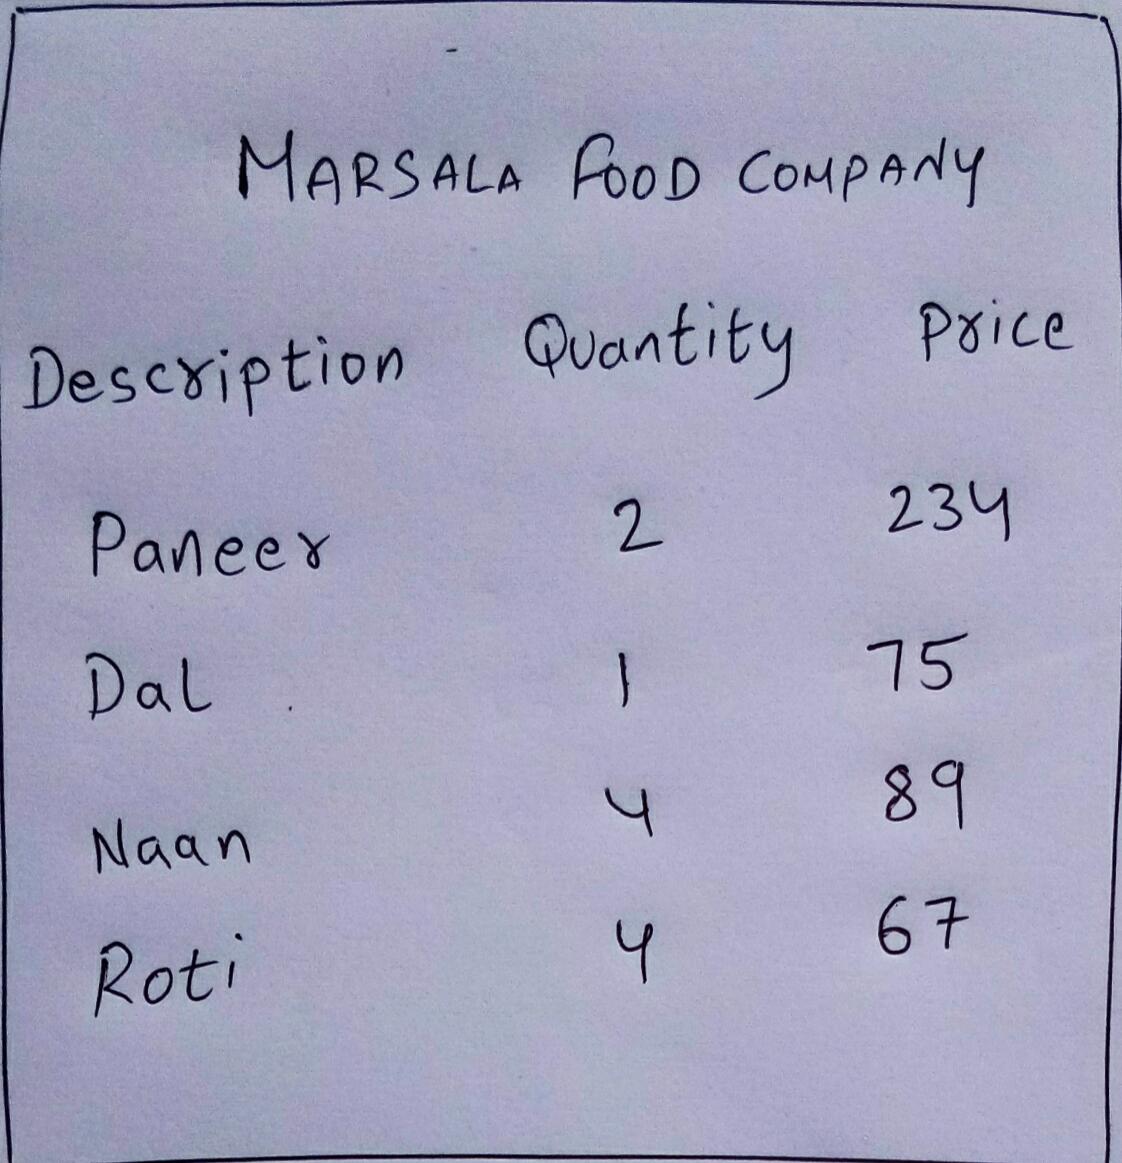 MARSALA FOOD COMPANY
Description Quantity Price
Paneer 2 234
Dal 1 75
Naan 4 89
Roti 4 67